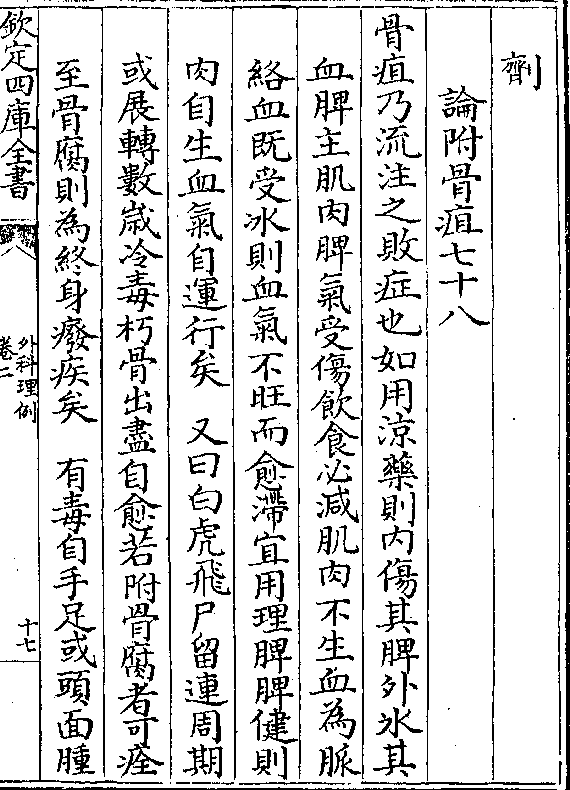 劑
論附骨疽七十八
骨疽乃流注之敗症也如用涼藥則內傷其脾外冰其
血脾主肌肉脾氣受傷飲食必減肌肉不生血為脈
絡血既受冰則血氣不旺而愈滯宜用理脾脾健則
肉自生血氣自運行矣 又曰白虎飛尸留連周期
或展轉數嵗冷毒朽骨出盡自愈若附骨腐者可痊
至骨腐則為終身癈疾矣 有毒自手足或頭面腫
欽定四庫全書
外科理例
卷二
十七